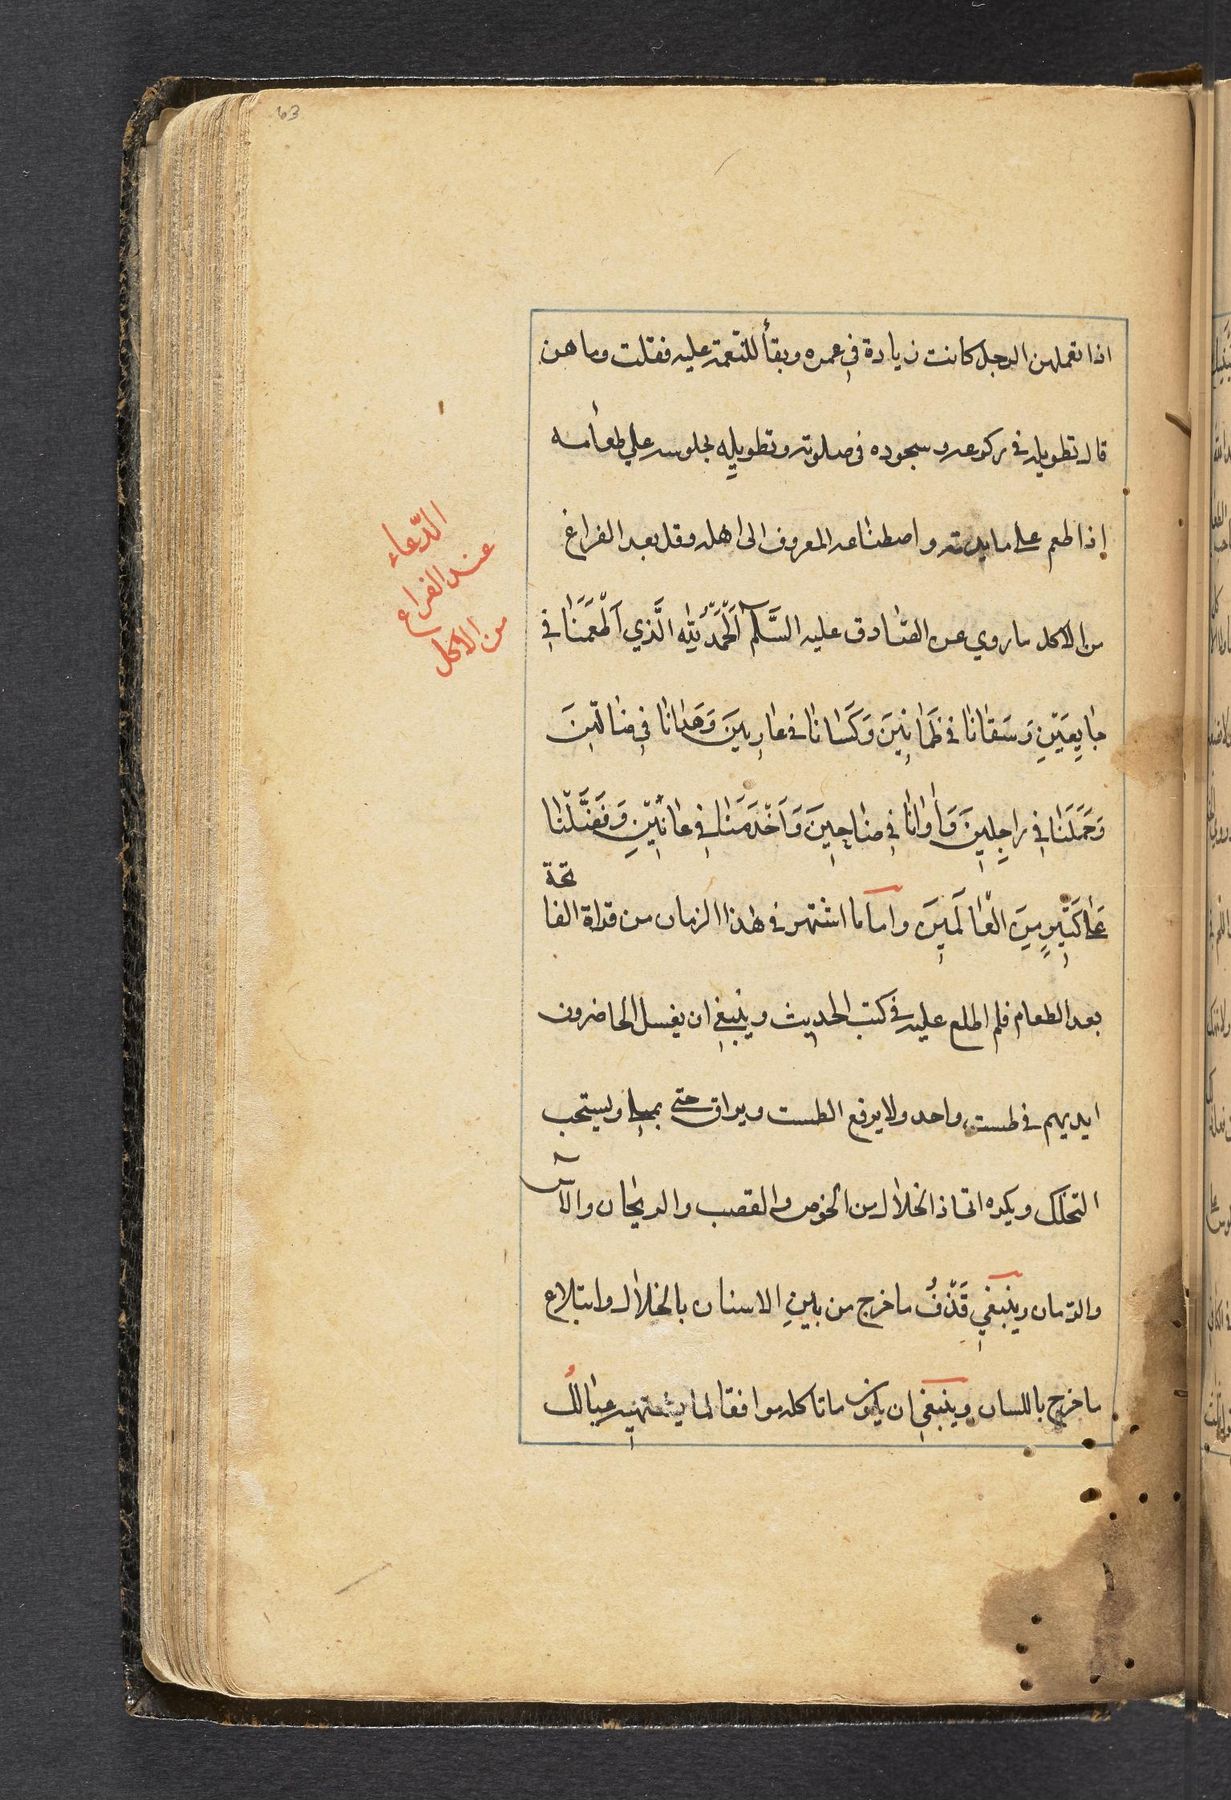 63
اذا تعملهن الرجل كانت زيادة في عمره وبقأ للنعمة عليه فقلت وما هن
قال تطويله في ركوعه و سجوده في صلوته وتطويله لجلوسه علي طعامه
إذا طعم علي مايدته واصطناعه المعروف الى اهله وقل بعد الفراغ
من الاكل ما روي عن الصّادق عليه السَّلم اَلْحَمْدُ لِلّٰهِ الَّذي اَطْعَمَنَا في
جايِعَيْنِ وَسَقانا في ظَمْانِينَ وَكَسَانا في عَارِينَ وَهَدانا في ضالّينَ
وَحَمَلَنَا في راجِلِينَ وَاٰوانَا في ضَاحِينَ وَاَخْدَمَنَا في عانِيْنِ وَفَضَّلْنَا
عَلي كَثِيرٍ مِنَ الْعٰالَمينَ واما ما اشتهر في هذا الزمان من قراة الفا
تحة
بعد الطعام فلم اطلع عليه في كتب الحديث وينبغي ان يغسل الحاضرون
ايديهم في طست واحد ولا يرفع الطست ويراق حتي يمتلي ويستحب
التخلل ويكره اتخاذ الخلال من الخوص والقصب والريحان والآس
والرّمان وينبغي قَذْفُ ما خرج من بين الاسنان بالخلال وابتلاع
ما خرج باللسان وينبغي ان يكون ما تاكله موافقا لما يشتهيه عيالك
الدّعاء
عند الفراغ
من الاكل